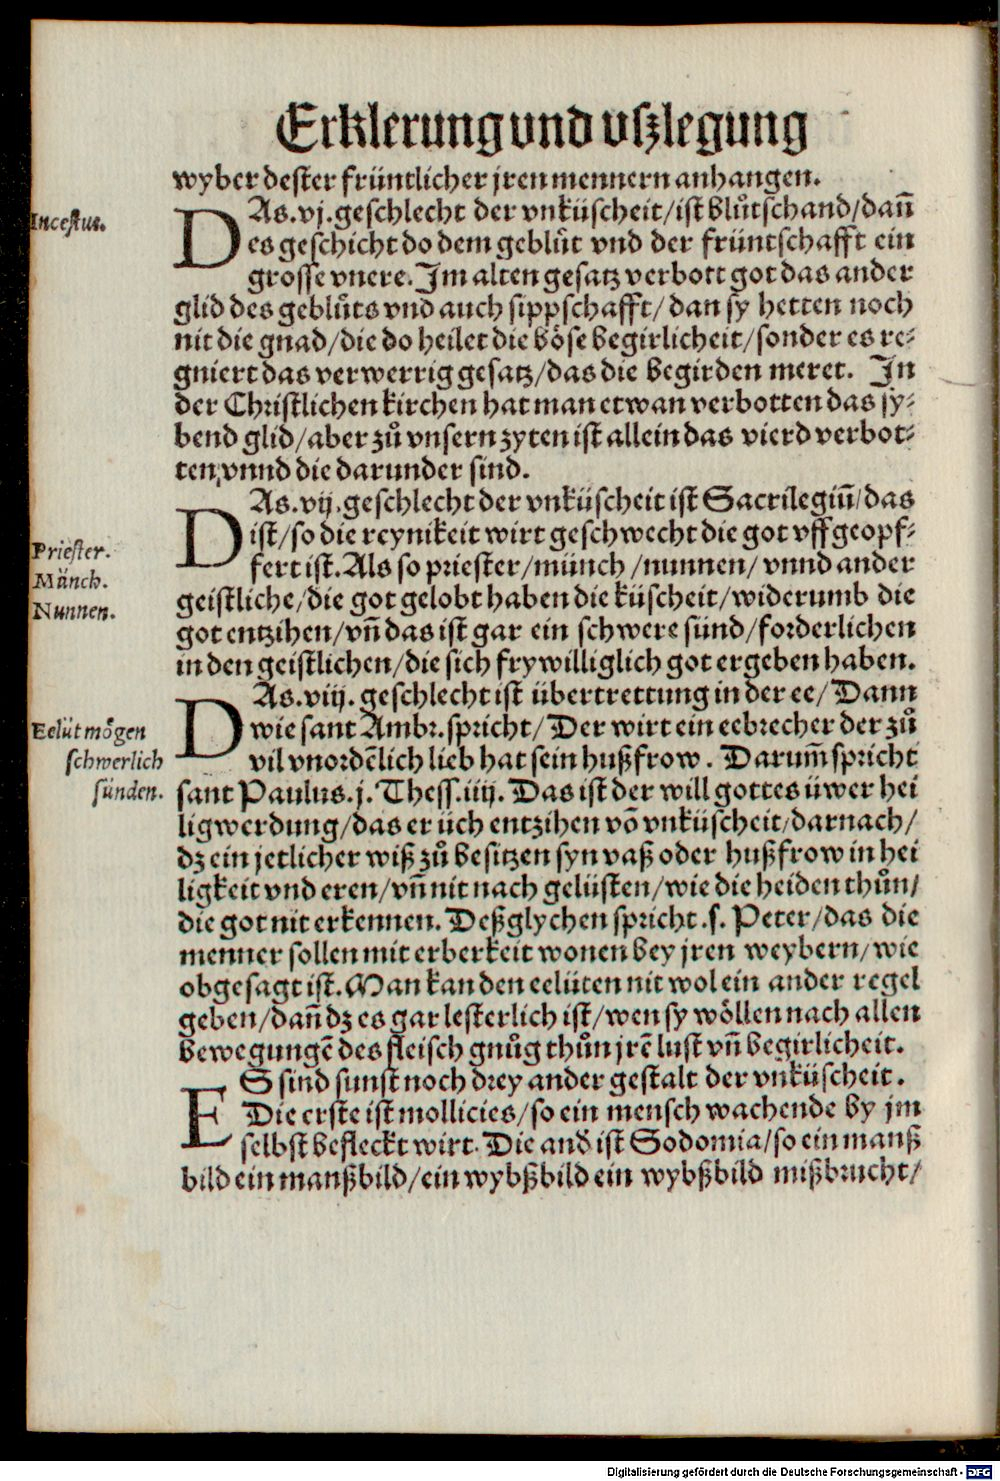 Erklerung vnd vſzlegung
wyber deſter früntlicher jren mennern anhangen.
Inceſtus.
DAs .vj. geſchlecht der vnküſcheit/iſt blůtſchand/dañ
es geſchicht do dem geblüt vnd der früntſchafft ein
groſſe vnere. Im alten geſatz verbott got das ander
glid des geblůts vnd auch ſippſchafft/ dan ſy hetten noch
nit die gnad/die do heilet die böſe begirlicheit/ſonder es re⸗
gniert das verwerrig geſatz/das die begirden meret. In
der Chriſtlichen kirchen hat man etwan verbotten das ſy⸗
bend glid/aber zů vnſern zyten iſt allein das vierd verbot⸗
ten, vnnd die darunder ſind.
DAs .vij. geſchlecht der vnküſcheit iſt Sacrilegiū/das
iſt/ſo die reynikeit wirt geſchwecht die got vffgeopf⸗
Prieſter.
fert iſt. Als ſo prieſter/münch /nunnen/ vnnd ander
Mänch.
geiſtliche/die got gelobt haben die küſcheit/widerumb die
Nunnen.
got entzihen/vñ das iſt gar ein ſchwere ſünd/forderlichen
in den geiſtlichen/die ſich frywilliglich got ergeben haben.
DAs .viij. geſchlecht iſt übertrettung in der ee/ Dann
Eelüt mögen
wie ſant Ambr. ſpricht/ Der wirt ein eebrecher der zů
ſchwerlich
vil vnordēlich lieb hat ſein hußfrow. Darum̄ ſpricht
ſünden.
ſant Paulus .j. Theſſ. iiij. Das iſt der will gottes üwer hei
ligwerdung/das er üch entzihen vō vnküſcheit/darnach/
dz ein jetlicher wiß zů beſitzen ſyn vaß oder hußfrow in hei
ligkeit vnd eren/vñ nit nach gelüſten/wie die heiden thůn/
die got nit erkennen. Deßglychen ſpricht .ſ. Peter/das die
menner ſollen mit erberkeit wonen bey jren weybern/wie
obgeſagt iſt. Man kan den eelüten nit wol ein ander regel
geben/dañ dz es gar leſterlich iſt/wen ſy wöllen nach allen
bewegungē des fleiſch gnůg thůn jrē luſt vñ begirlicheit.
ES ſind ſunſt noch drey ander geſtalt der vnküſcheit.
Die erſte iſt mollicies/ſo ein menſch wachende by jm
ſelbſt befleckt wirt. Die and iſt Sodomia/ſo ein manß
bild ein manßbild/ein wybßbild ein wybßbild mißbrucht/
Digitalisierung gefördert durch die Deutsche Forschungsgemeinschaft - DFG